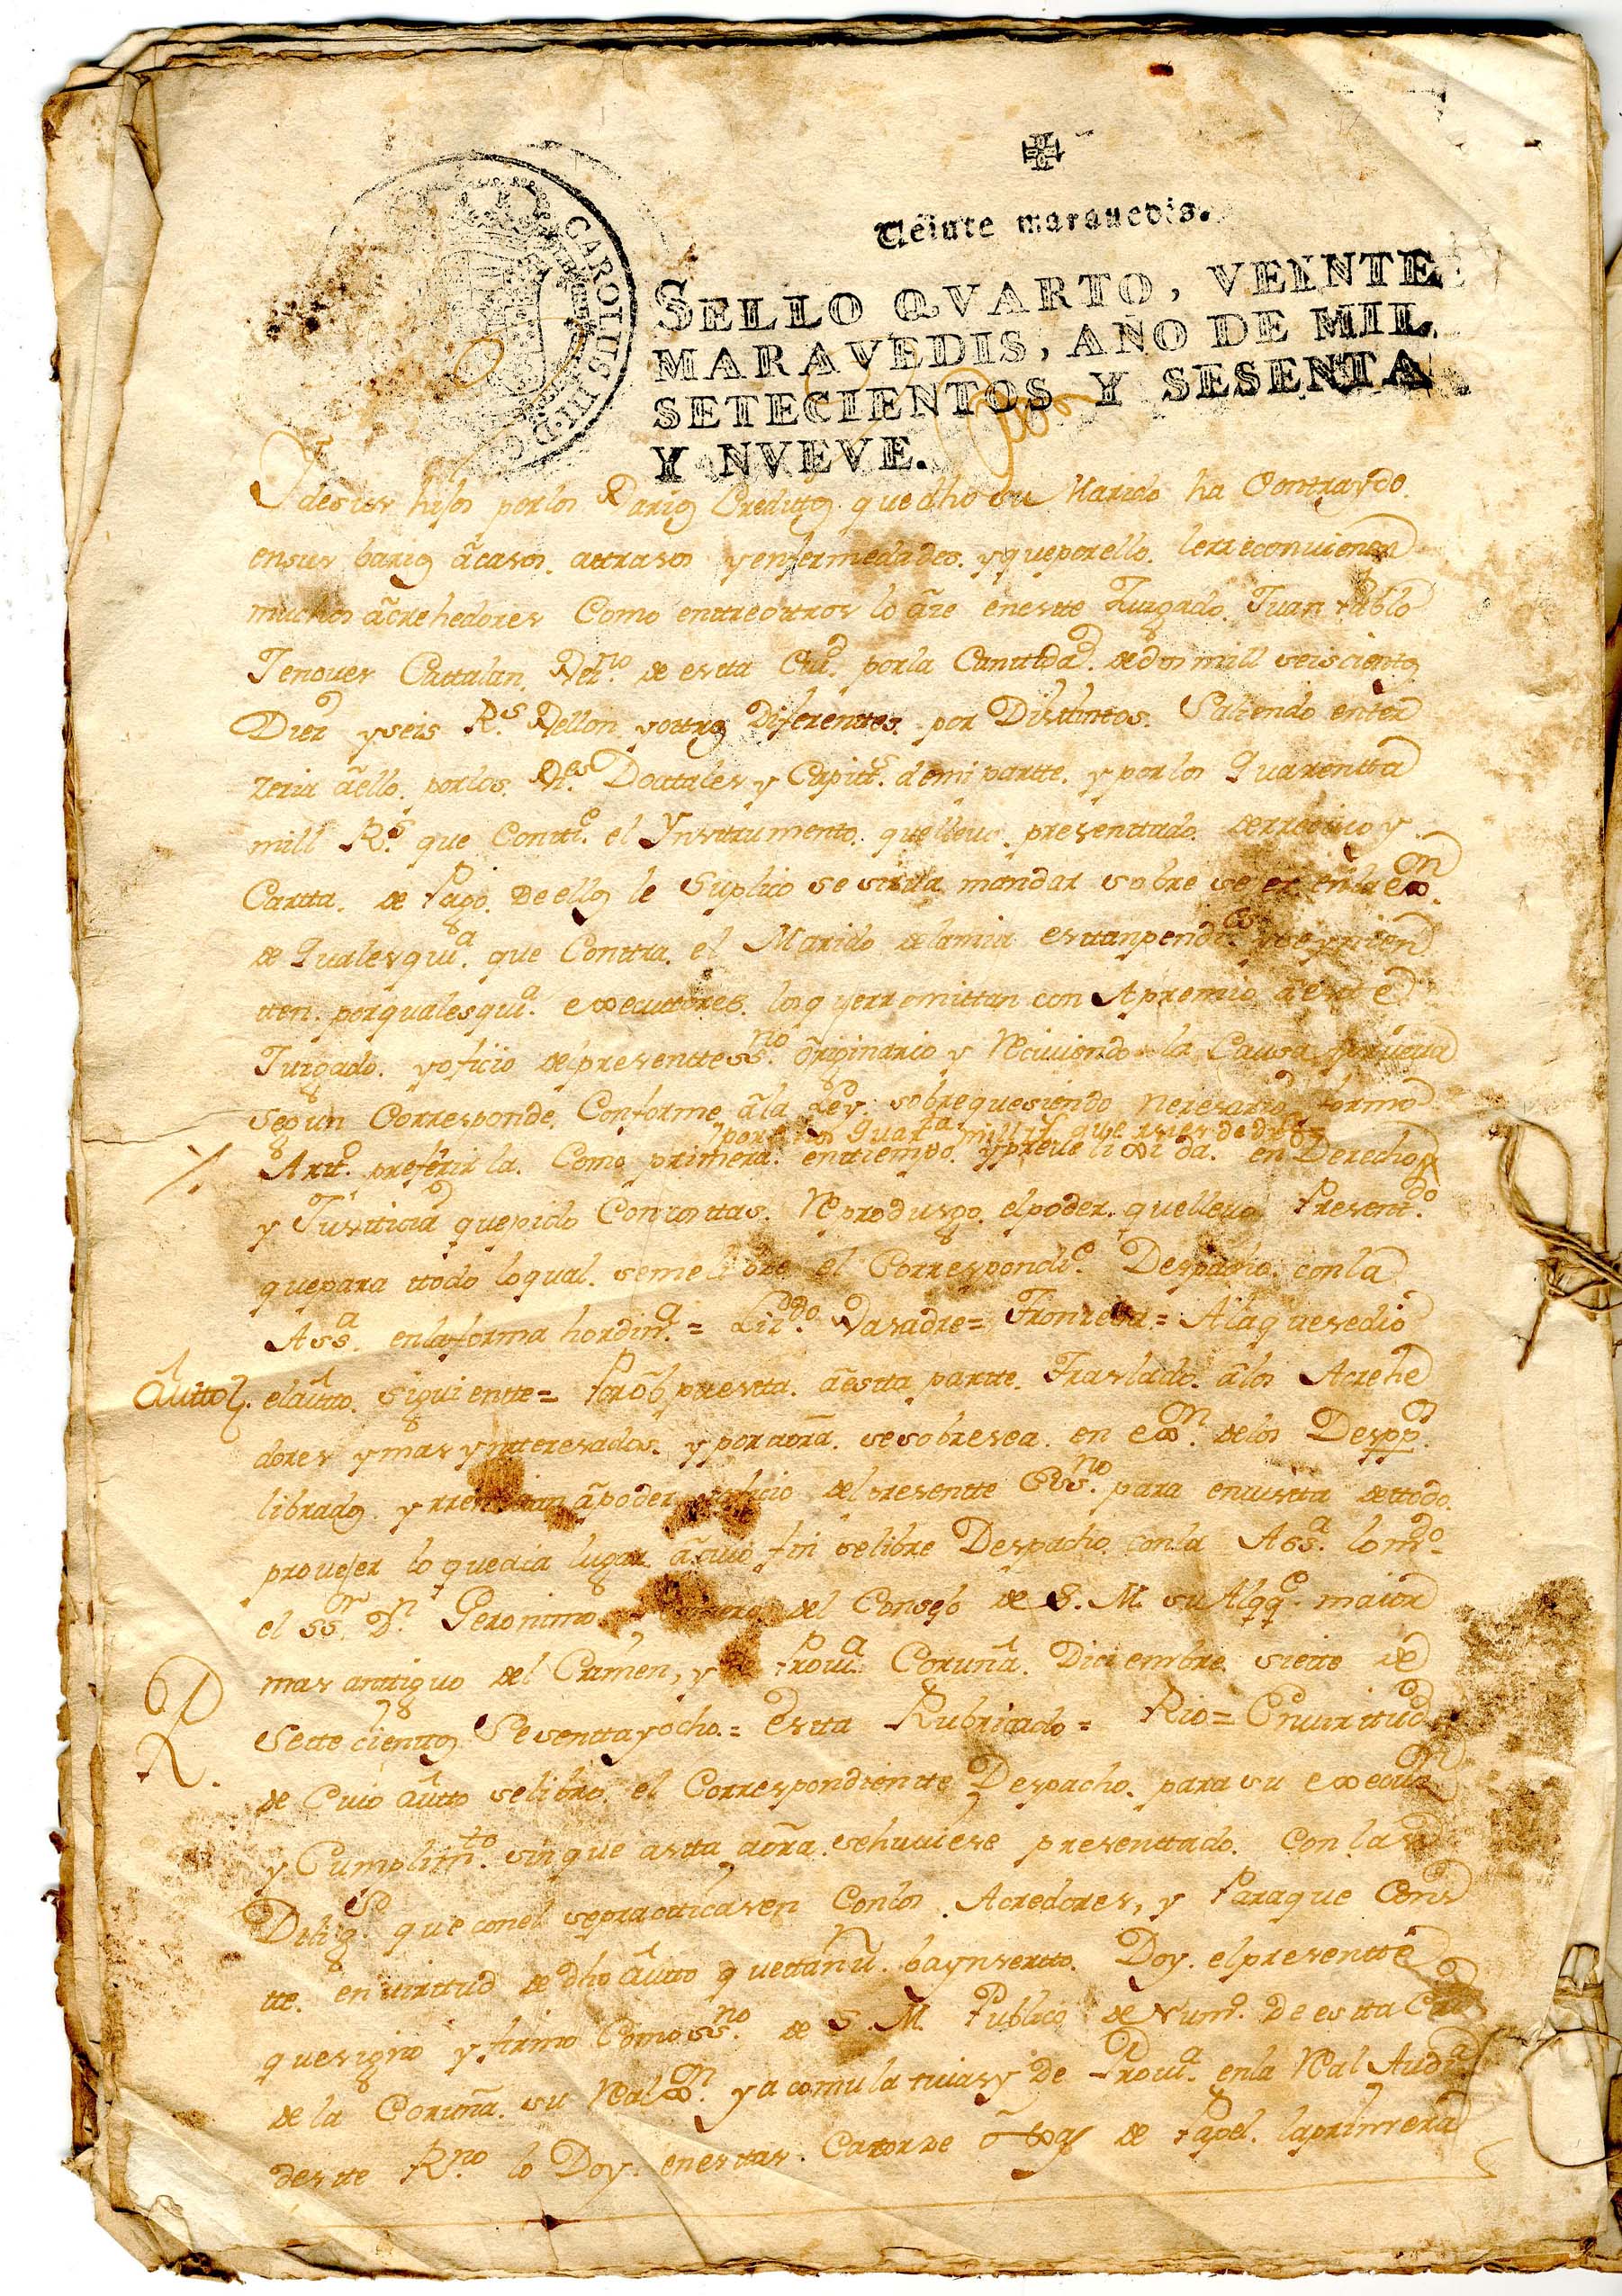 Veinte maravedis.
SELLO QVARTO, VEINTE
MARAVEDIS, AÑO DE MIL
SETECIENTOS Y SESENTA
Y NVEVE.
CAROLUS III D G
I desus hijos por los Varios Creditos que dho su Marido ha Contraydo
ensus barios acasos. attrasos y enfermedades. y queporello. lerreconvienen
muchos acrehedores Como entreotros lo aze eneste Juzgado. Juan Pablo
Jenover Cattalan. Vez.no de esta Ciud. porla Canttidad. de dos mill seiscientos
Diez y seis R.s Vellon y ottros Diferenttes. por Disttinttos. Saliendo enter
zeria aello. porlos. Dottales y Capitt.s demi partte. y por los Quarentta
mill R.s que Contti.e el Ynstrumento. quellevo. presenttado. derrecivo y
Cartta. de Pago. De ellos le Suplico se sirva mandar sobre
de Qualesqui.a que Conttra. el Marido delamia estanpendi.es
tten. porqualesqui.a executtores. los q yerromittan con Apremio aeste
Juzgado. y oficio delpresenttess.no originario y Reciviendo la Causa aprueva
segun Corresponde. Conforme ala Ley. sobrequesiendo nezesario formo
por los Quar.ta mill r.s que
Artt.o preferirla. Como primera. enttiempo. en Derecho
y Justticia quepido Concosttas. Reprodusgo. elpoder. quellevo Presentt.do
quepara ttodo loqual. semelibre el Correspondi.e Despacho. conla
Ass.a enlaforma hordin.a = Liz.do Vasadre = = Alaquesedio
Autto. elautto. siguientte = Porôbpuestta. aestta partte. Traslado. alos Acrehe
dores ymas ynteresados. y poraora. sesobresea. en exon. delos Desppos
librados y rremittan apoder yoficio del presentte Ess.no para envistta dettodo.
proveer lo quedia lugar acuio fin selibre Despacho conla Ass.a lomdo
el ss.or D.n Geronimo del Consejo de S. M. su Alqq.e maior
mas anttiguo del Crimen, y de Provi.a Coruña. Diciembre. siette de
Sette cienttos Sesenttayocho. = Estta Rubricado = Rio = Envirttud
de Cuio autto selibro. el Correspondientte Despacho. para su execuon
y Cumplimto. sinque astta aora. sehuviese presenttado. Con las
Dilig.s que conel sepractticasen Conlos. Acredores, y Paraque Cons
tte. en virttud de dho autto quettanvn. baynsertto. Doy. elpresentte
quesigno y firmo Comoss.no de S. M. Publico de Num.o De estta Ciud
de la Coruña. su Real y acomulativas y de Provi.a enla Real Audi.a
destte R.no lo Doy. enesttas. Catorze ôxas de Papel. laprimera